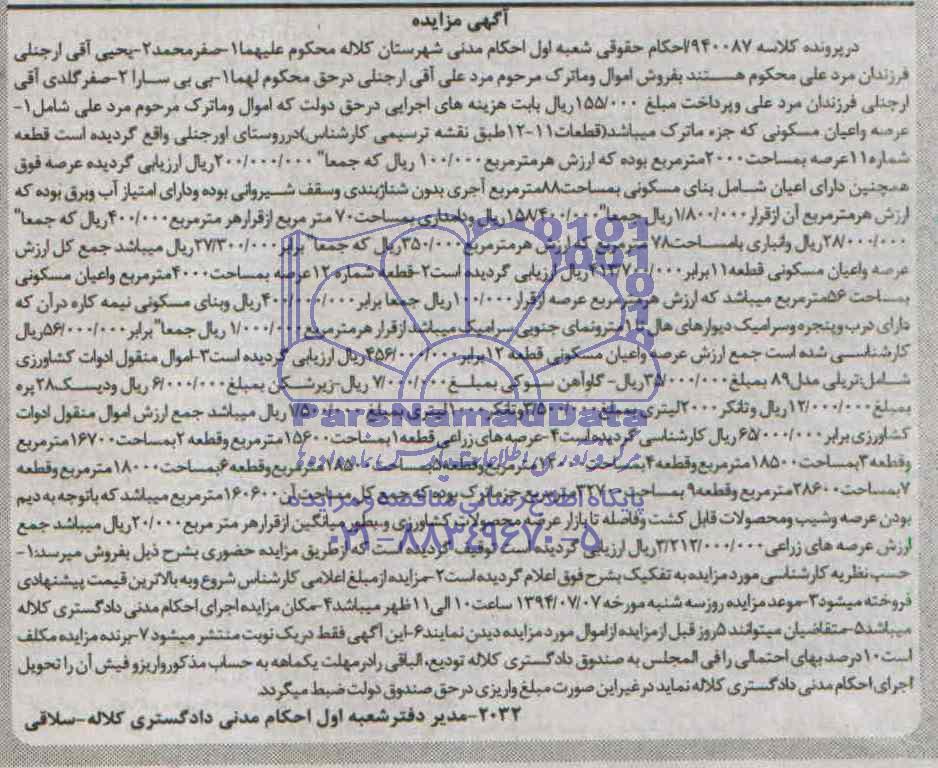 آگهی مزایده
درپرونده کلاسه ۹۴۰۰۸۷/احکام حقوقی شعبه اول احکام مدنی شهرستان کلاله محکوم علیهما۱-صفرمحمد۲-یحیی آقی ارجنلی
فرزندان مرد علی محکوم هستند بفروش اموال وماترک مرحوم مرد علی آقی ارجنلی درحق محکوم لهما۱-بی بی سارا ۲-صفرگلدی آقی
ارجنلی فرزندان مرد علی وپرداخت مبلغ ۱۵۵/۰۰۰ریال بابت هزینه های اجرایی درحق دولت که اموال وماترک مرحوم مرد علی شامل۱-
عرصه واعیان مسکونی که جزء ماترک میباشد(قطعات۱۱-۱۲طبق نقشه ترسیمی کارشناس)درروستای اورجنلی واقع گردیده است قطعه
شماره۱۱عرصه بمساحت۲۰۰۰مترمربع بوده که ارزش هرمترمربع ۱۰۰/۰۰۰ ریال که جمعا" ۲۰۰/۰۰۰/۰۰۰ریال ارزیابی گردیده عرصه فوق
همچنین دارای اعیان شامل بنای مسکونی بمساحت۸۸مترمربع آجری بدون شناژبندی وسقف شیروانی بوده ودارای امتیاز آب وبرق بوده که
ارزش هرمترمربع آن ازقرار ۱/۸۰۰/۰۰۰ریال جمعا"۱۵۸/۴۰۰/۰۰۰ریال ودامداری بمساحت۷۰ متر مربع ازقرارهر مترمربع۴۰۰/۰۰۰ریال که جمعا"
۲۸/۰۰۰/۰۰۰ریال وانباری بامساحت۷۸ مترمربع که ارزش هرمترمربع۳۵۰/۰۰۰ریال که جمعا" برابر۲۷/۳۰۰/۰۰۰ریال میباشد جمع کل ارزش
عرصه واعیان مسکونی قطعه۱۱برابر۴۱۳/۷۰۰/۰۰۰ریال ارزیابی گردیده است۲-قطعه شماره ۱۲عرصه بمساحت۴۰۰۰مترمربع واعیان مسکونی
بمساحت ۵۶مترمربع میباشد که ارزش هرمترمربع عرصه ازقرار۱۰۰/۰۰۰ریال جمعا برابر۴۰۰/۰۰۰/۰۰۰ریال وبنای مسکونی نیمه کاره درآن که
دارای درب وپنجره وسرامیک دیوارهای هال تا۱مترونمای جنوبی سرامیک میباشد ازقرار هرمترمربع۱/۰۰۰/۰۰۰ ریال جمعا"برابر۵۶/۰۰۰/۰۰۰ریال
کارشناسی شده است جمع ارزش عرصه واعیان مسکونی قطعه ۱۲برابر۴۵۶/۰۰۰/۰۰۰ریال ارزیابی گردیده است۳-اموال منقول ادوات کشاورزی
شامل:تریلی مدل۸۹ بمبلغ۳۵/۰۰۰/۰۰۰ریال- گاوآهن سوکی بمبلغ۷/۰۰۰/۰۰۰ ریال-زیرشکن بمبلغ۶/۰۰۰/۰۰۰ ریال ودیسک۲۸پره
بمبلغ۱۲/۰۰۰/۰۰۰ریال وتانکر۲۰۰۰لیتری بمبلغ۳/۵۰۰/۰۰۰وتانکر۱۰۰۰لیتری بمبلغ۱/۵۰۰/۰۰۰ریال میباشد جمع ارزش اموال منقول ادوات
کشاورزی برابر۶۵/۰۰۰/۰۰۰ریال کارشناسی گردیده است۴-عرصه های زراعی قطعه۱بمساحت۱۵۶۰۰مترمربع وقطعه ۲بمساحت۱۶۷۰۰مترمربع
وقطعه۳بمساحت۱۸۵۰۰مترمربع وقطعه۴بمساحت مترمربع وقطعه۵بمساحت مترمربع وقطعه۶بمساحت۱۸۰۰۰مترمربع وقطعه
۷بمساحت۲۸۶۰۰مترمربع وقطعه۹ بمساحت۳۲۷۰۰مترمربع جزءماترک بوده که جمع کل مساحت آن۱۶۰۶۰۰مترمربع میباشد که باتوجه به دیم
بودن عرصه وشیب ومحصولات قابل کشت وفاصله تا بازار عرضه محصولات کشاورزی وبطورمیانگین ازقرارهر متر مربع۲۰/۰۰۰ریال میباشد جمع
ارزش عرصه های زراعی۳/۲۱۲/۰۰۰/۰۰۰ریال ارزیابی گردیده است توقیف گردیده است که ازطریق مزایده حضوری بشرح ذیل بفروش میرسد:۱-
حسب نظریه کارشناسی مورد مزایده به تفکیک بشرح فوق اعلام گردیده است۲-مزایده ازمبلغ اعلامی کارشناس شروع وبه بالاترین قیمت پیشنهادی
فروخته میشود۳-موعد مزایده روزسه شنبه مورخه ۱۳۹۴/۰۷/۰۷ ساعت۱۰ الی۱۱ظهر میباشد۴-مکان مزایده اجرای احکام مدنی دادگستری کلاله
میباشد۵-متقاضیان میتوانند ۵روز قبل ازمزایده ازاموال مورد مزایده دیدن نمایند۶-این آگهی فقط دریک نوبت منتشر میشود۷-برنده مزایده مکلف
است۱۰درصد بهای احتمالی رافی المجلس به صندوق دادگستری کلاله تودیع، الباقی رادرمهلت یکماهه به حساب مذکورواریزو فیش آن را تحویل
اجرای احکام مدنی دادگستری کلاله نماید درغیراین صورت مبلغ واریزی درحق صندوق دولت ضبط میگردد.
۲۰۳۲-مدیر دفترشعبه اول احکام مدنی دادگستری کلاله-سلاقی
ParsNamadData
پایگاه اطلاع رسانی مناقصه و مزایده
۰۲۱-۸۸۳۴۹۶۷۰-۵